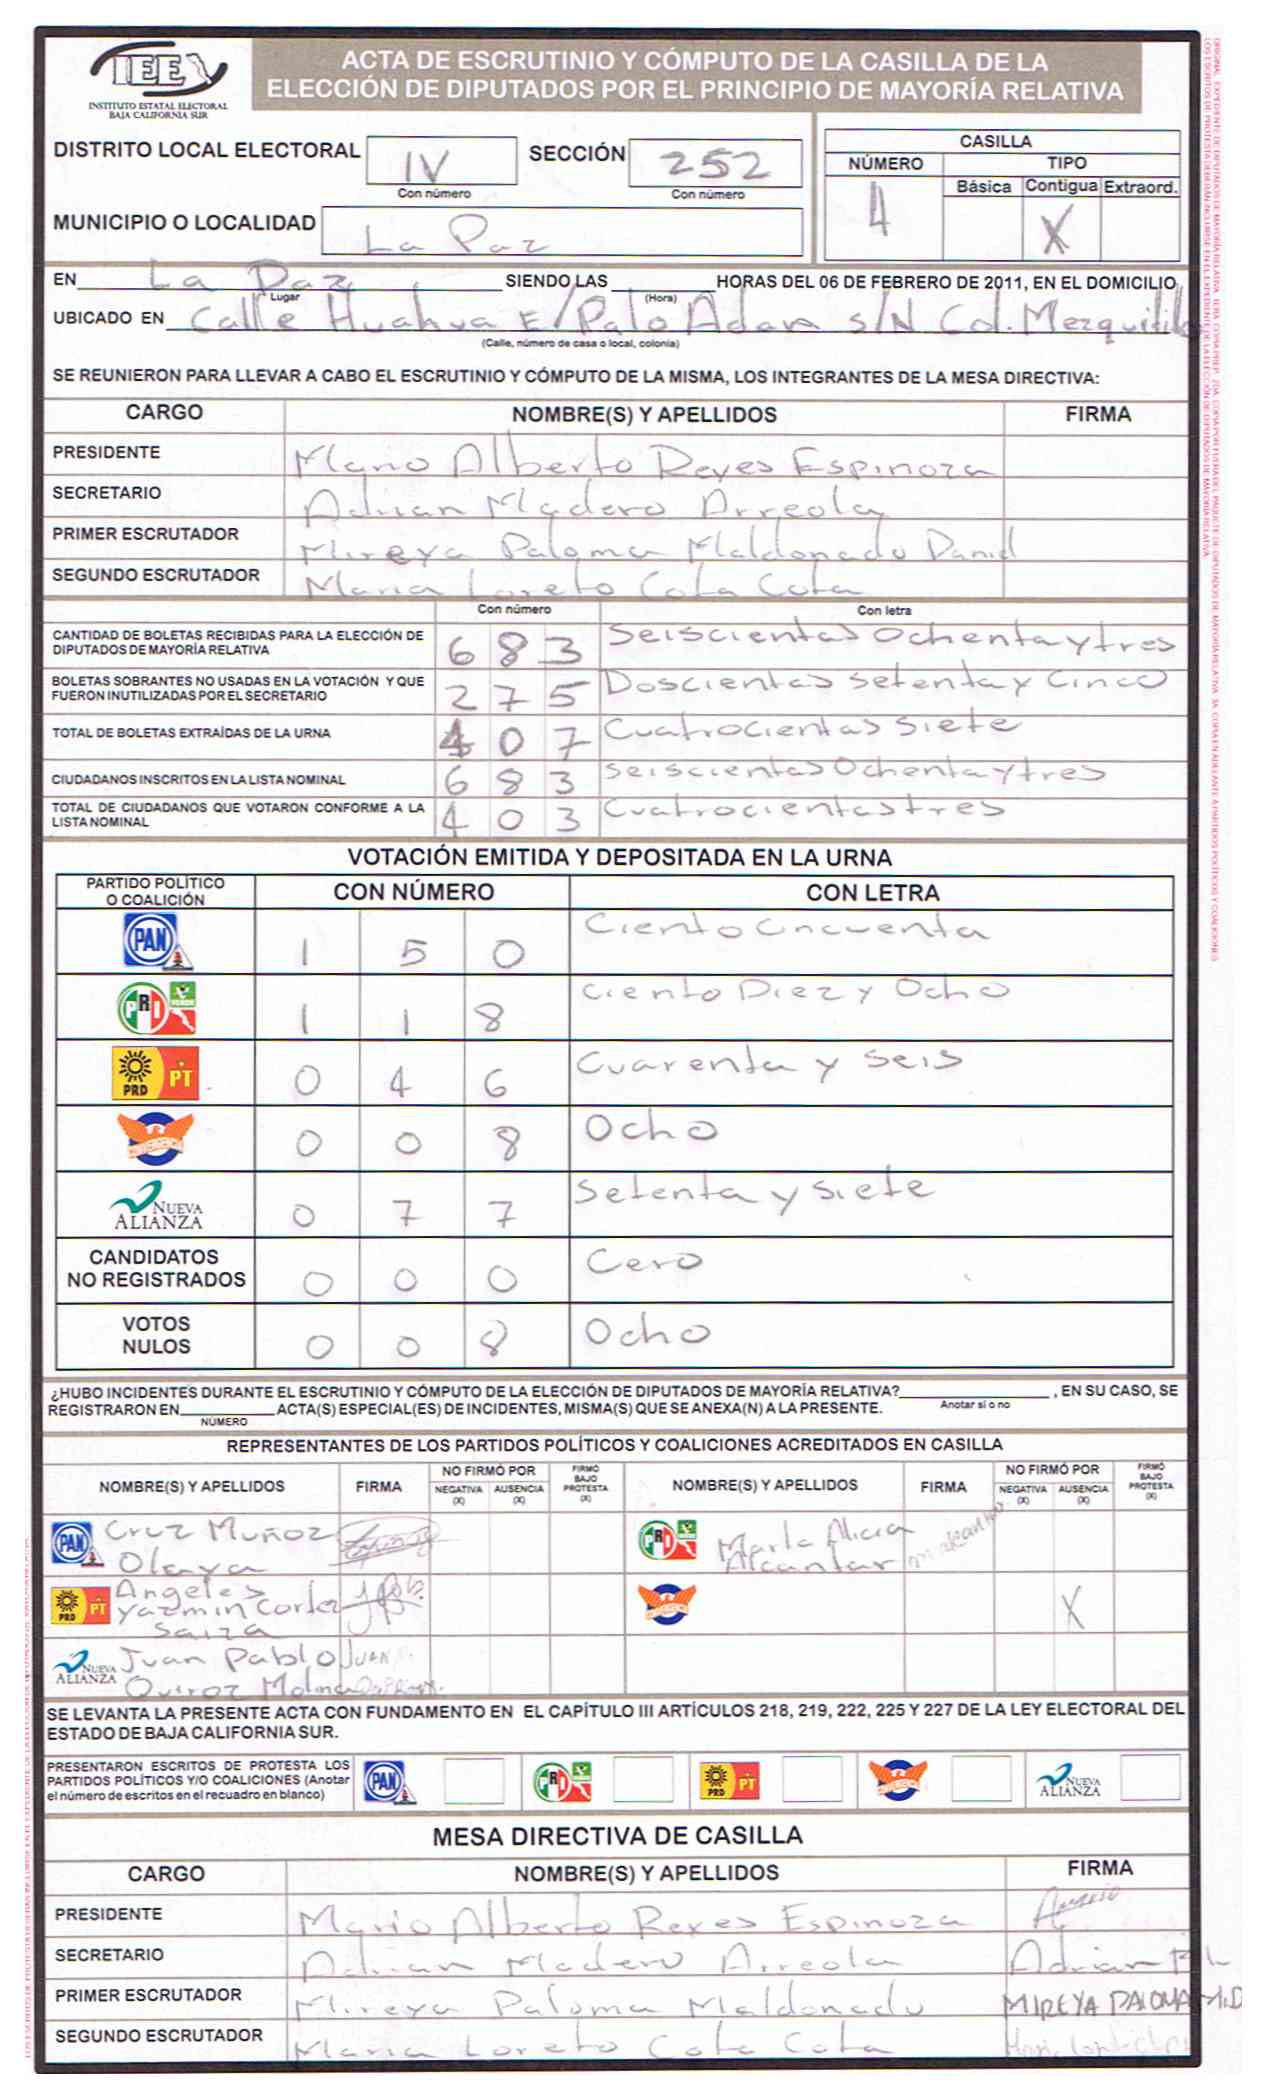 IEE
INSTITUTO ESTATAL ELECTORAL
BAJA CALIFORNIA SUR
ACTA DE ESCRUTINIO Y CÓMPUTO DE LA CASILLA DE LA
ELECCIÓN DE DIPUTADOS POR EL PRINCIPIO DE MAYORÍA RELATIVA
DISTRITO LOCAL ELECTORAL IV SECCIÓN 252
Con número Con número
CASILLA
NÚMERO TIPO
Básica Contigua Extraord.
4 X
MUNICIPIO O LOCALIDAD La Paz
EN La Paz SIENDO LAS HORAS DEL 06 DE FEBRERO DE 2011, EN EL DOMICILIO
Lugar (Hora)
UBICADO EN Calle Huahua E/Palo Adan S/N Col. Mezquitillo
(Calle, número de casa o local, colonia)
SE REUNIERON PARA LLEVAR A CABO EL ESCRUTINIO Y CÓMPUTO DE LA MISMA, LOS INTEGRANTES DE LA MESA DIRECTIVA:
CARGO NOMBRE(S) Y APELLIDOS FIRMA
PRESIDENTE Mario Alberto Reyes Espinoza
SECRETARIO Adrian Madero Arreola
PRIMER ESCRUTADOR Mireya Paloma Maldonado Daniel
SEGUNDO ESCRUTADOR Maria Loreto Cota Cota
Con número Con letra
CANTIDAD DE BOLETAS RECIBIDAS PARA LA ELECCIÓN DE
DIPUTADOS DE MAYORÍA RELATIVA 683 Seiscientas Ochenta y tres
BOLETAS SOBRANTES NO USADAS EN LA VOTACIÓN Y QUE
FUERON INUTILIZADAS POR EL SECRETARIO 275 Doscientas Setenta y Cinco
TOTAL DE BOLETAS EXTRAÍDAS DE LA URNA 407 Cuatrocientas Siete
CIUDADANOS INSCRITOS EN LA LISTA NOMINAL 683 Seiscientas Ochenta y tres
TOTAL DE CIUDADANOS QUE VOTARON CONFORME A LA
LISTA NOMINAL 403 Cuatrocientas tres
VOTACIÓN EMITIDA Y DEPOSITADA EN LA URNA
PARTIDO POLÍTICO
O COALICIÓN CON NÚMERO CON LETRA
PAN 1 5 0 Ciento Cincuenta
PRI VERDE 1 1 8 Ciento Diez y Ocho
PRD PT 0 4 6 Cuarenta y Seis
CONVERGENCIA 0 0 8 Ocho
NUEVA ALIANZA 0 7 7 Setenta y Siete
CANDIDATOS
NO REGISTRADOS 0 0 0 Cero
VOTOS
NULOS 0 0 8 Ocho
¿HUBO INCIDENTES DURANTE EL ESCRUTINIO Y CÓMPUTO DE LA ELECCIÓN DE DIPUTADOS DE MAYORÍA RELATIVA? , EN SU CASO, SE
Anotar si o no
REGISTRARON EN ACTA(S) ESPECIAL(ES) DE INCIDENTES, MISMA(S) QUE SE ANEXA(N) A LA PRESENTE.
NÚMERO
REPRESENTANTES DE LOS PARTIDOS POLÍTICOS Y COALICIONES ACREDITADOS EN CASILLA
NOMBRE(S) Y APELLIDOS FIRMA NO FIRMÓ POR NEGATIVA (X) AUSENCIA (X) FIRMÓ BAJO PROTESTA (X) NOMBRE(S) Y APELLIDOS FIRMA NO FIRMÓ POR NEGATIVA (X) AUSENCIA (X) FIRMÓ BAJO PROTESTA (X)
PAN Cruz Muñoz
Olaya
PRI VERDE Marta Alicia
Alcantar
PRD PT Angeles
Yazmin Cortez
Saiza
CONVERGENCIA X
NUEVA ALIANZA Juan Pablo Juan
Quiroz Molina
SE LEVANTA LA PRESENTE ACTA CON FUNDAMENTO EN EL CAPÍTULO III ARTÍCULOS 218, 219, 222, 225 Y 227 DE LA LEY ELECTORAL DEL
ESTADO DE BAJA CALIFORNIA SUR.
PRESENTARON ESCRITOS DE PROTESTA LOS
PARTIDOS POLÍTICOS Y/O COALICIONES (Anotar
el número de escritos en el recuadro en blanco)
PAN PRI VERDE PRD PT CONVERGENCIA NUEVA ALIANZA
MESA DIRECTIVA DE CASILLA
CARGO NOMBRE(S) Y APELLIDOS FIRMA
PRESIDENTE Mario Alberto Reyes Espinoza
SECRETARIO Adrian Madero Arreola Adrian
PRIMER ESCRUTADOR Mireya Paloma Maldonado MIREYA PALOMA M.D
SEGUNDO ESCRUTADOR Maria Loreto Cota Cota